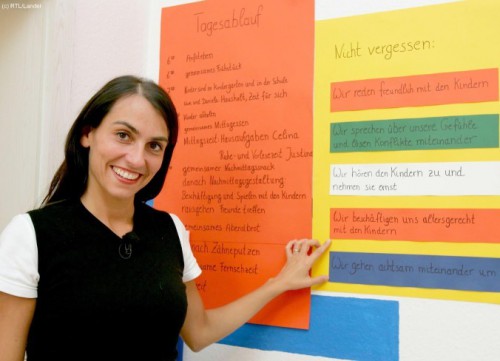 (c) RTL/Landel
Tagesablauf
Aufstehen
gemeinsames Frühstück
Kinder sind im Kindergarten und in der Schule
und Daniela Haushalt, Zeit für sich
Kinder abholen
gemeinsames Mittagessen
Mittagszeit Hausaufgaben Celina
Ruhe- und Vorlesezeit Justine
gemeinsamer Nachmittagssnack
danach Nachmittagsgestaltung
Beschäftigung und Spielen mit den Kindern
rausgehen Freunde treffen
gemeinsames Abendbrot
nach Zähneputzen
Fernsehzeit
Nicht vergessen:
Wir reden freundlich mit den Kindern
Wir sprechen über unsere Gefühle
und lösen Konflikte miteinander
Wir hören den Kindern zu und
nehmen sie ernst
Wir beschäftigen uns altersgerecht
mit den Kindern
Wir gehen achtsam miteinander um